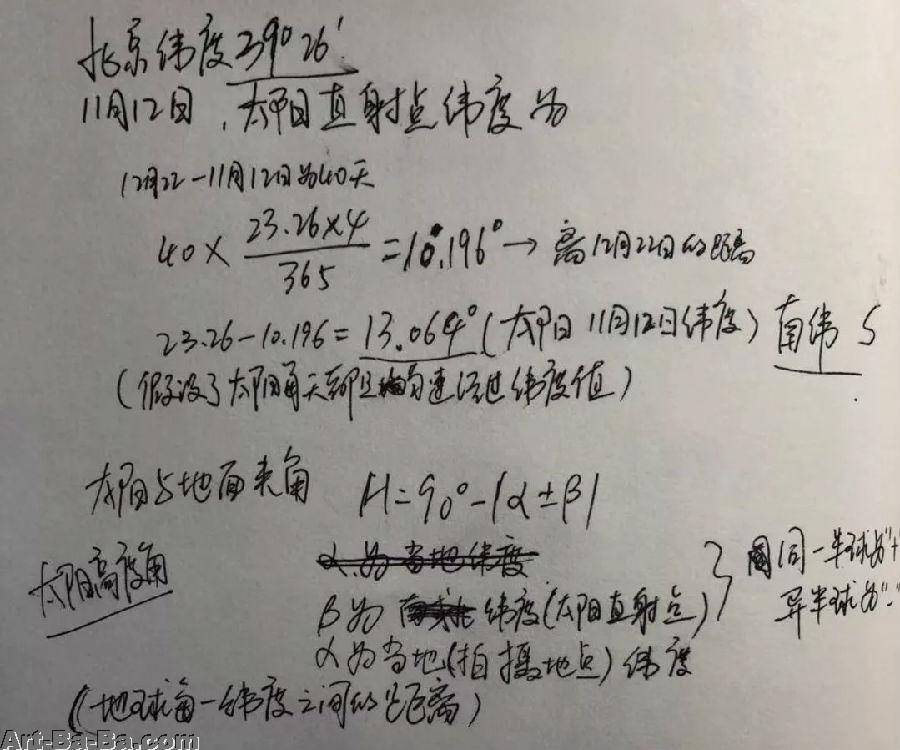 北京纬度39°26′
11月12日，太阳直射点纬度为
12月22-11月12日为40天
40×23.26×4/365=10.196°→离12月22日的距离
23.26-10.196=13.064°(太阳日11月12日纬度)南纬 S
(假设了太阳每天都且均匀速经过纬度值)
太阳与地面夹角 H=90°-|α±β|
太阳高度角
α为当地纬度
β为纬度(太阳直射点)
α为当地(拍摄地点)纬度
同一半球为"+"
异半球为"-"
(地球每一纬度之间的距离)
Art-Ba-Ba.com